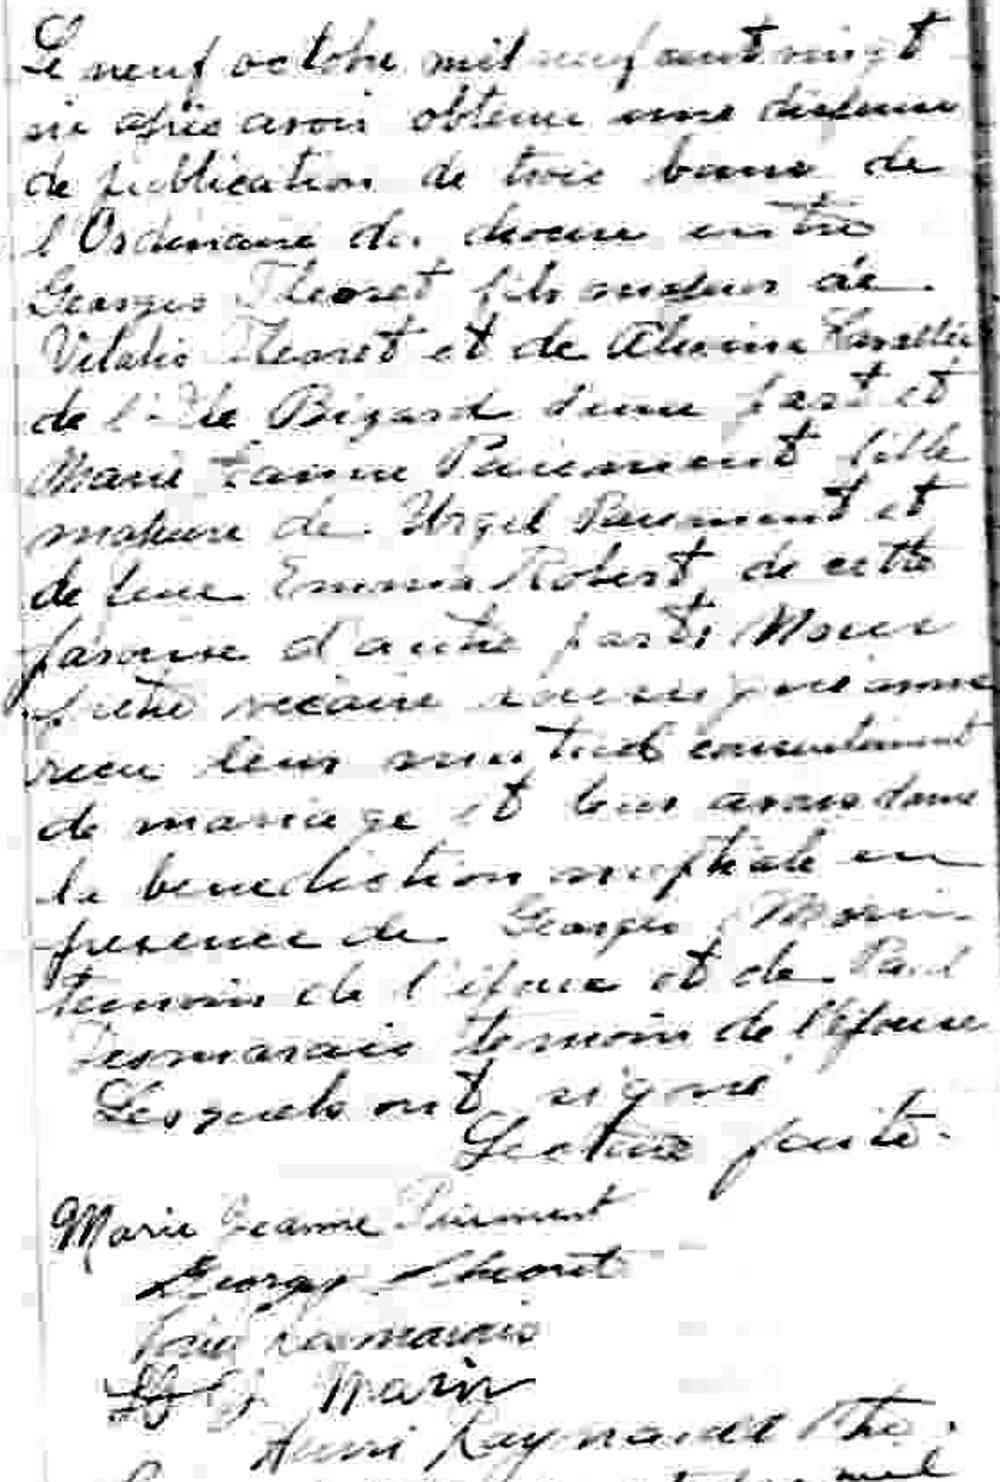 Le neuf octobre mil neuf cent vingt
six après avoir obtenu une dispense
de publication de trois bans de
l'Ordinaire du diocèse entre
Georges Theoret fils majeur de
Vitalis Theoret et de Alvina Lavallée
de l'Ile Bizard d'une part et
Marie Jeanne Paiement fille
majeure de Urgel Paiement et
de feue Emma Robert de cette
paroisse d'autre part, Nous
prêtre vicaire soussigné avons
recu leur mutuel consentement
de mariage et leur avons donné
la benediction nuptiale en
presence de Georges Morin
temoin de l'époux et de Paul
Desmarais temoin de l'épouse
Lesquels ont signé
Lecture faite.
Marie Jeanne Paiement
Georges Theoret
Paul Desmarais
G Morin
Henri Raymond Ptre.